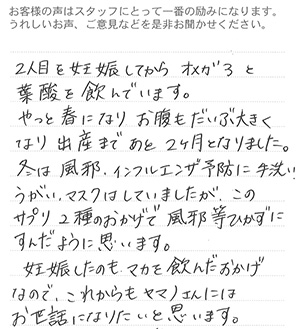 お客様の声はスタッフにとって一番の励みになります。
うれしいお声、ご意見などを是非お聞かせください。
2人目を妊娠してからオメガ3と
葉酸を飲んでいます。
やっと春になりお腹もだいぶ大きく
なり出産まであと2ヶ月となりました。
冬は風邪、インフルエンザ予防に手洗い
うがい、マスクはしていましたが、この
サプリ2種のおかげで風邪等ひかずに
すんだように思います。
妊娠したのもマカを飲んだおかげ
なので、これからもヤマノさんには
お世話になりたいと思います。